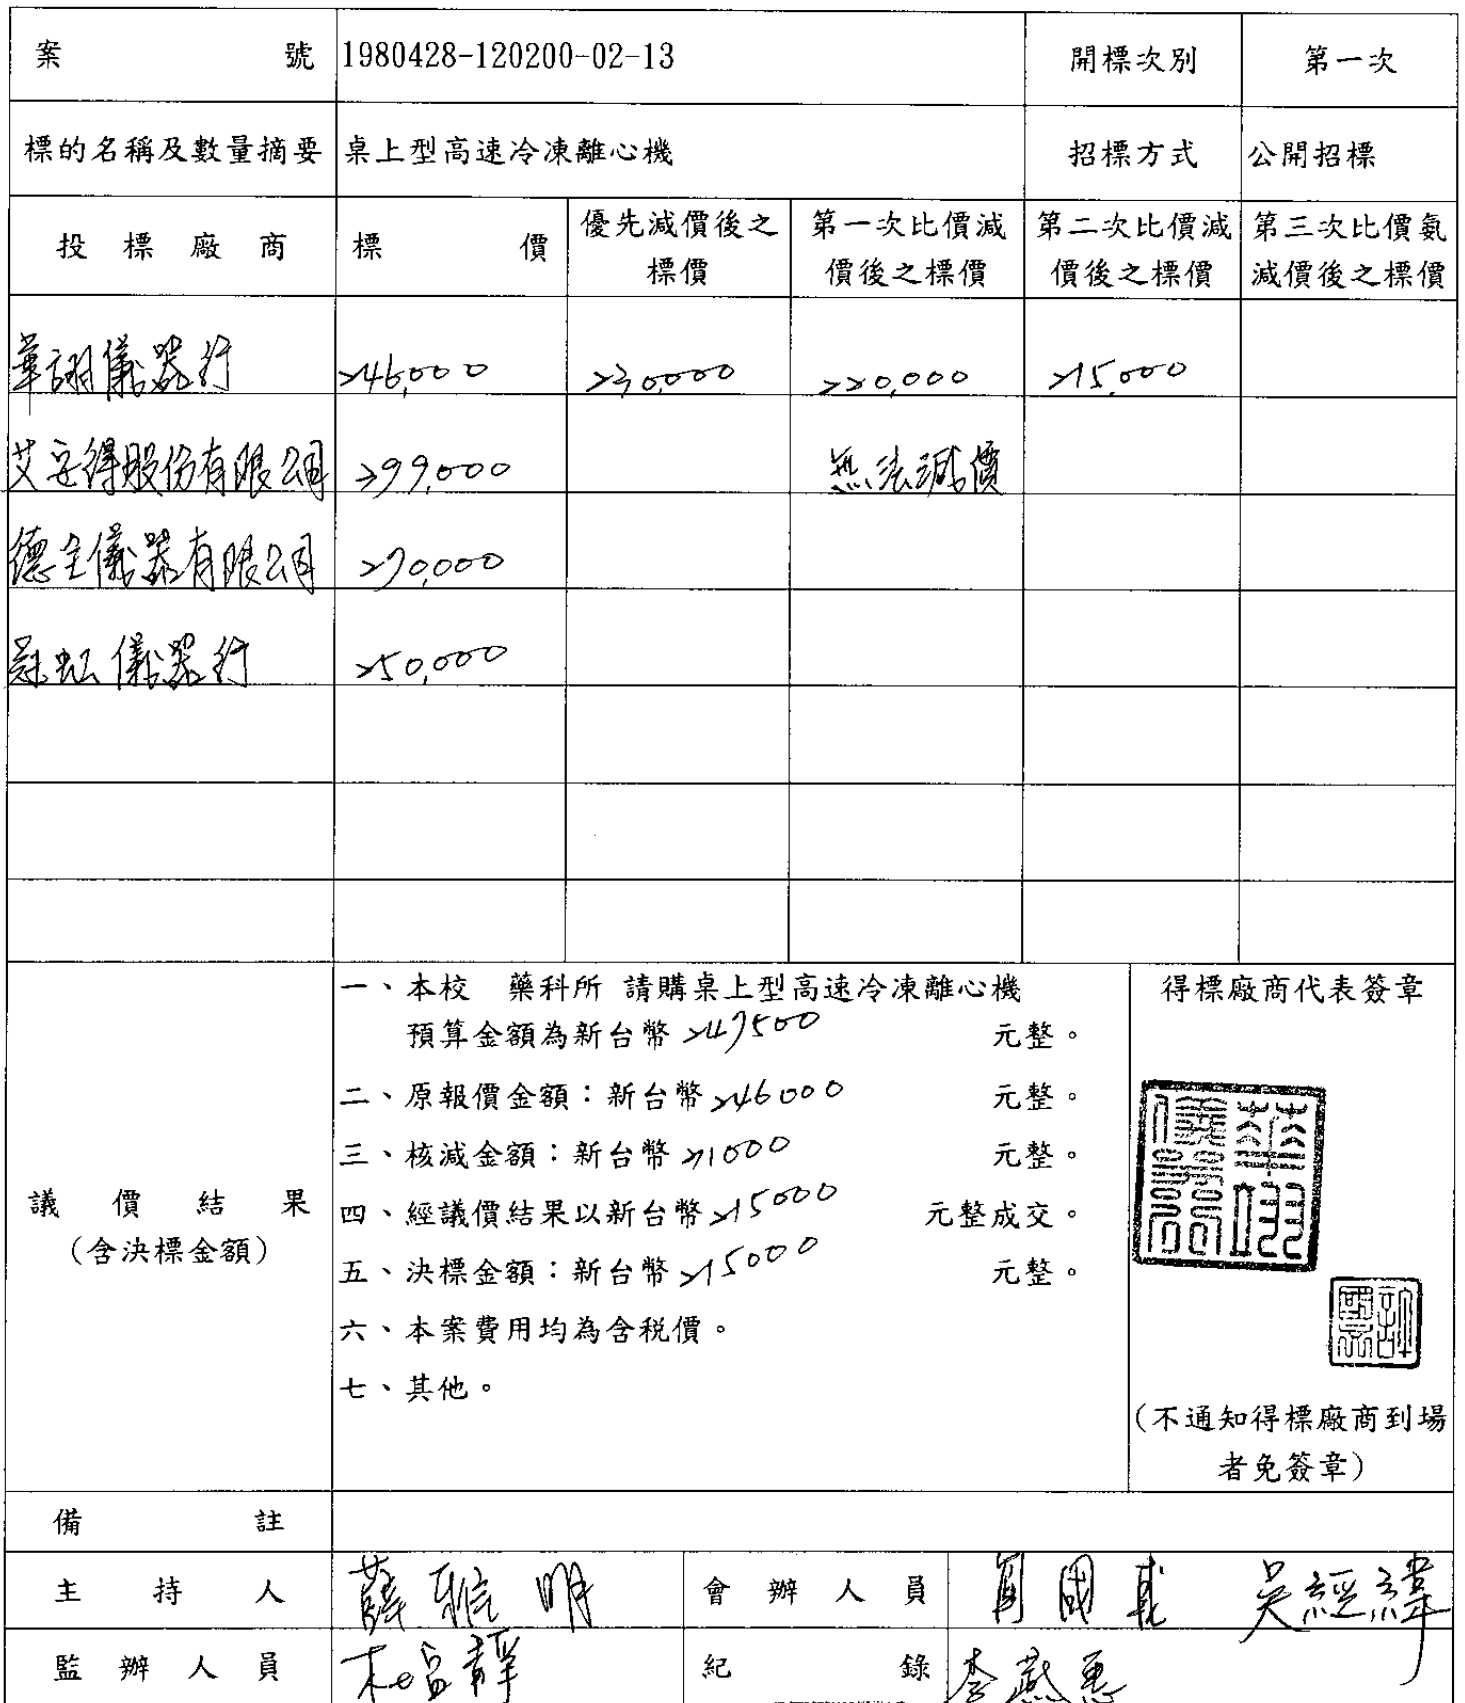 案號 1980428-120200-02-13 開標次別 第一次
標的名稱及數量摘要 桌上型高速冷凍離心機 招標方式 公開招標
投標廠商 標價 優先減價後之標價 第一次比價減價後之標價 第二次比價減價後之標價 第三次比價氨減價後之標價
華翊儀器行 246,000 230,000 220,000 215,000
艾安得股份有限公司 299,000 無法減價
德全儀器有限公司 270,000
冠虹儀器行 250,000
議價結果
(含決標金額)
一、本校 藥科所 請購桌上型高速冷凍離心機
預算金額為新台幣 247500 元整。
二、原報價金額：新台幣 246000 元整。
三、核減金額：新台幣 31000 元整。
四、經議價結果以新台幣 215000 元整成交。
五、決標金額：新台幣 215000 元整。
六、本案費用均為含稅價。
七、其他。
得標廠商代表簽章
華翊儀器
(不通知得標廠商到場
者免簽章)
備註
主持人 薛雅明 會辦人員 國 吳經緯
監辦人員 紀錄 李燕惠